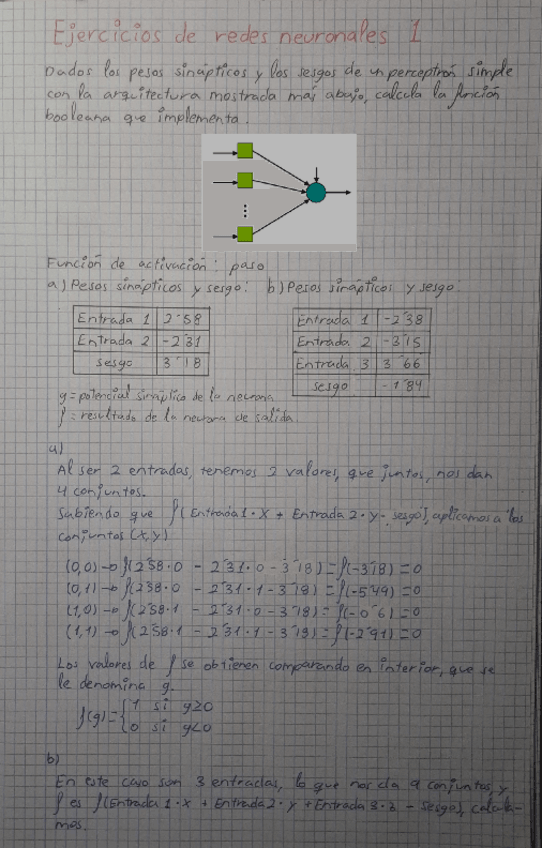 Ejercicios de redes neuronales 1
Dados los pesos sinápticos y los sesgos de un perceptrón simple
con la arquitectura mostrada más abajo, calcula la función
booleana que implementa.
Función de activación: paso
a) Pesos sinápticos y sesgo: b) Pesos sinápticos y sesgo:
Entrada 1 2´58
Entrada 2 -2´31
sesgo 3´18
Entrada 1 -2´38
Entrada 2 -3´15
Entrada 3 3´66
sesgo -1´84
g = potencial sináptico de la neurona
f = resultado de la neurona de salida.
a)
Al ser 2 entradas, tenemos 2 valores, que juntos, nos dan
4 conjuntos.
Sabiendo que f(Entrada 1·x + Entrada 2·y - sesgo), aplicamos a los
conjuntos (x,y)
(0,0) → f(2´58·0 - 2´31·0 - 3´18) = f(-3´18) = 0
(0,1) → f(2´58·0 - 2´31·1 - 3´18) = f(-5´49) = 0
(1,0) → f(2´58·1 - 2´31·0 - 3´18) = f(-0´6) = 0
(1,1) → f(2´58·1 - 2´31·1 - 3´18) = f(-2´91) = 0
Los valores de f se obtienen comparando en interior, que se
le denomina g.
f(g) = { 1 si g≥0
0 si g<0
b)
En este caso son 3 entradas, lo que nos da 9 conjuntos, y
f es f(Entrada 1·x + Entrada 2·y + Entrada 3·z - sesgo), calcula-
mos.